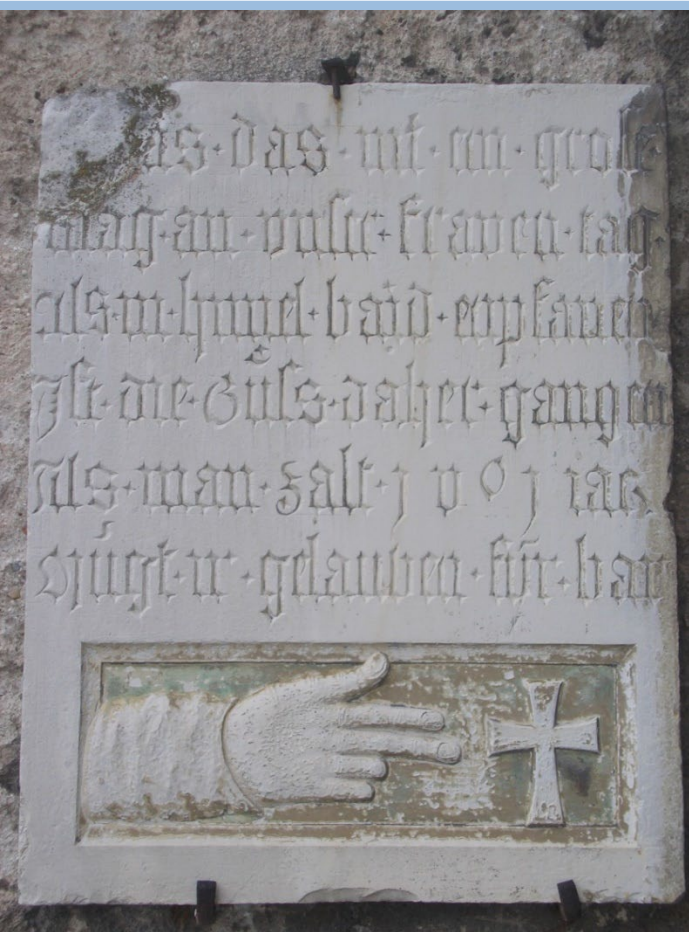 das · nit · an · grose
klag · an · vnser · fraven · tag ·
als · in · himel · bard · enpfanen
Ist · die · Güss · daher · gangen
Als · man · zalt · 1 v 0 1 iar
Mügt · ir · gelauben · für · bar